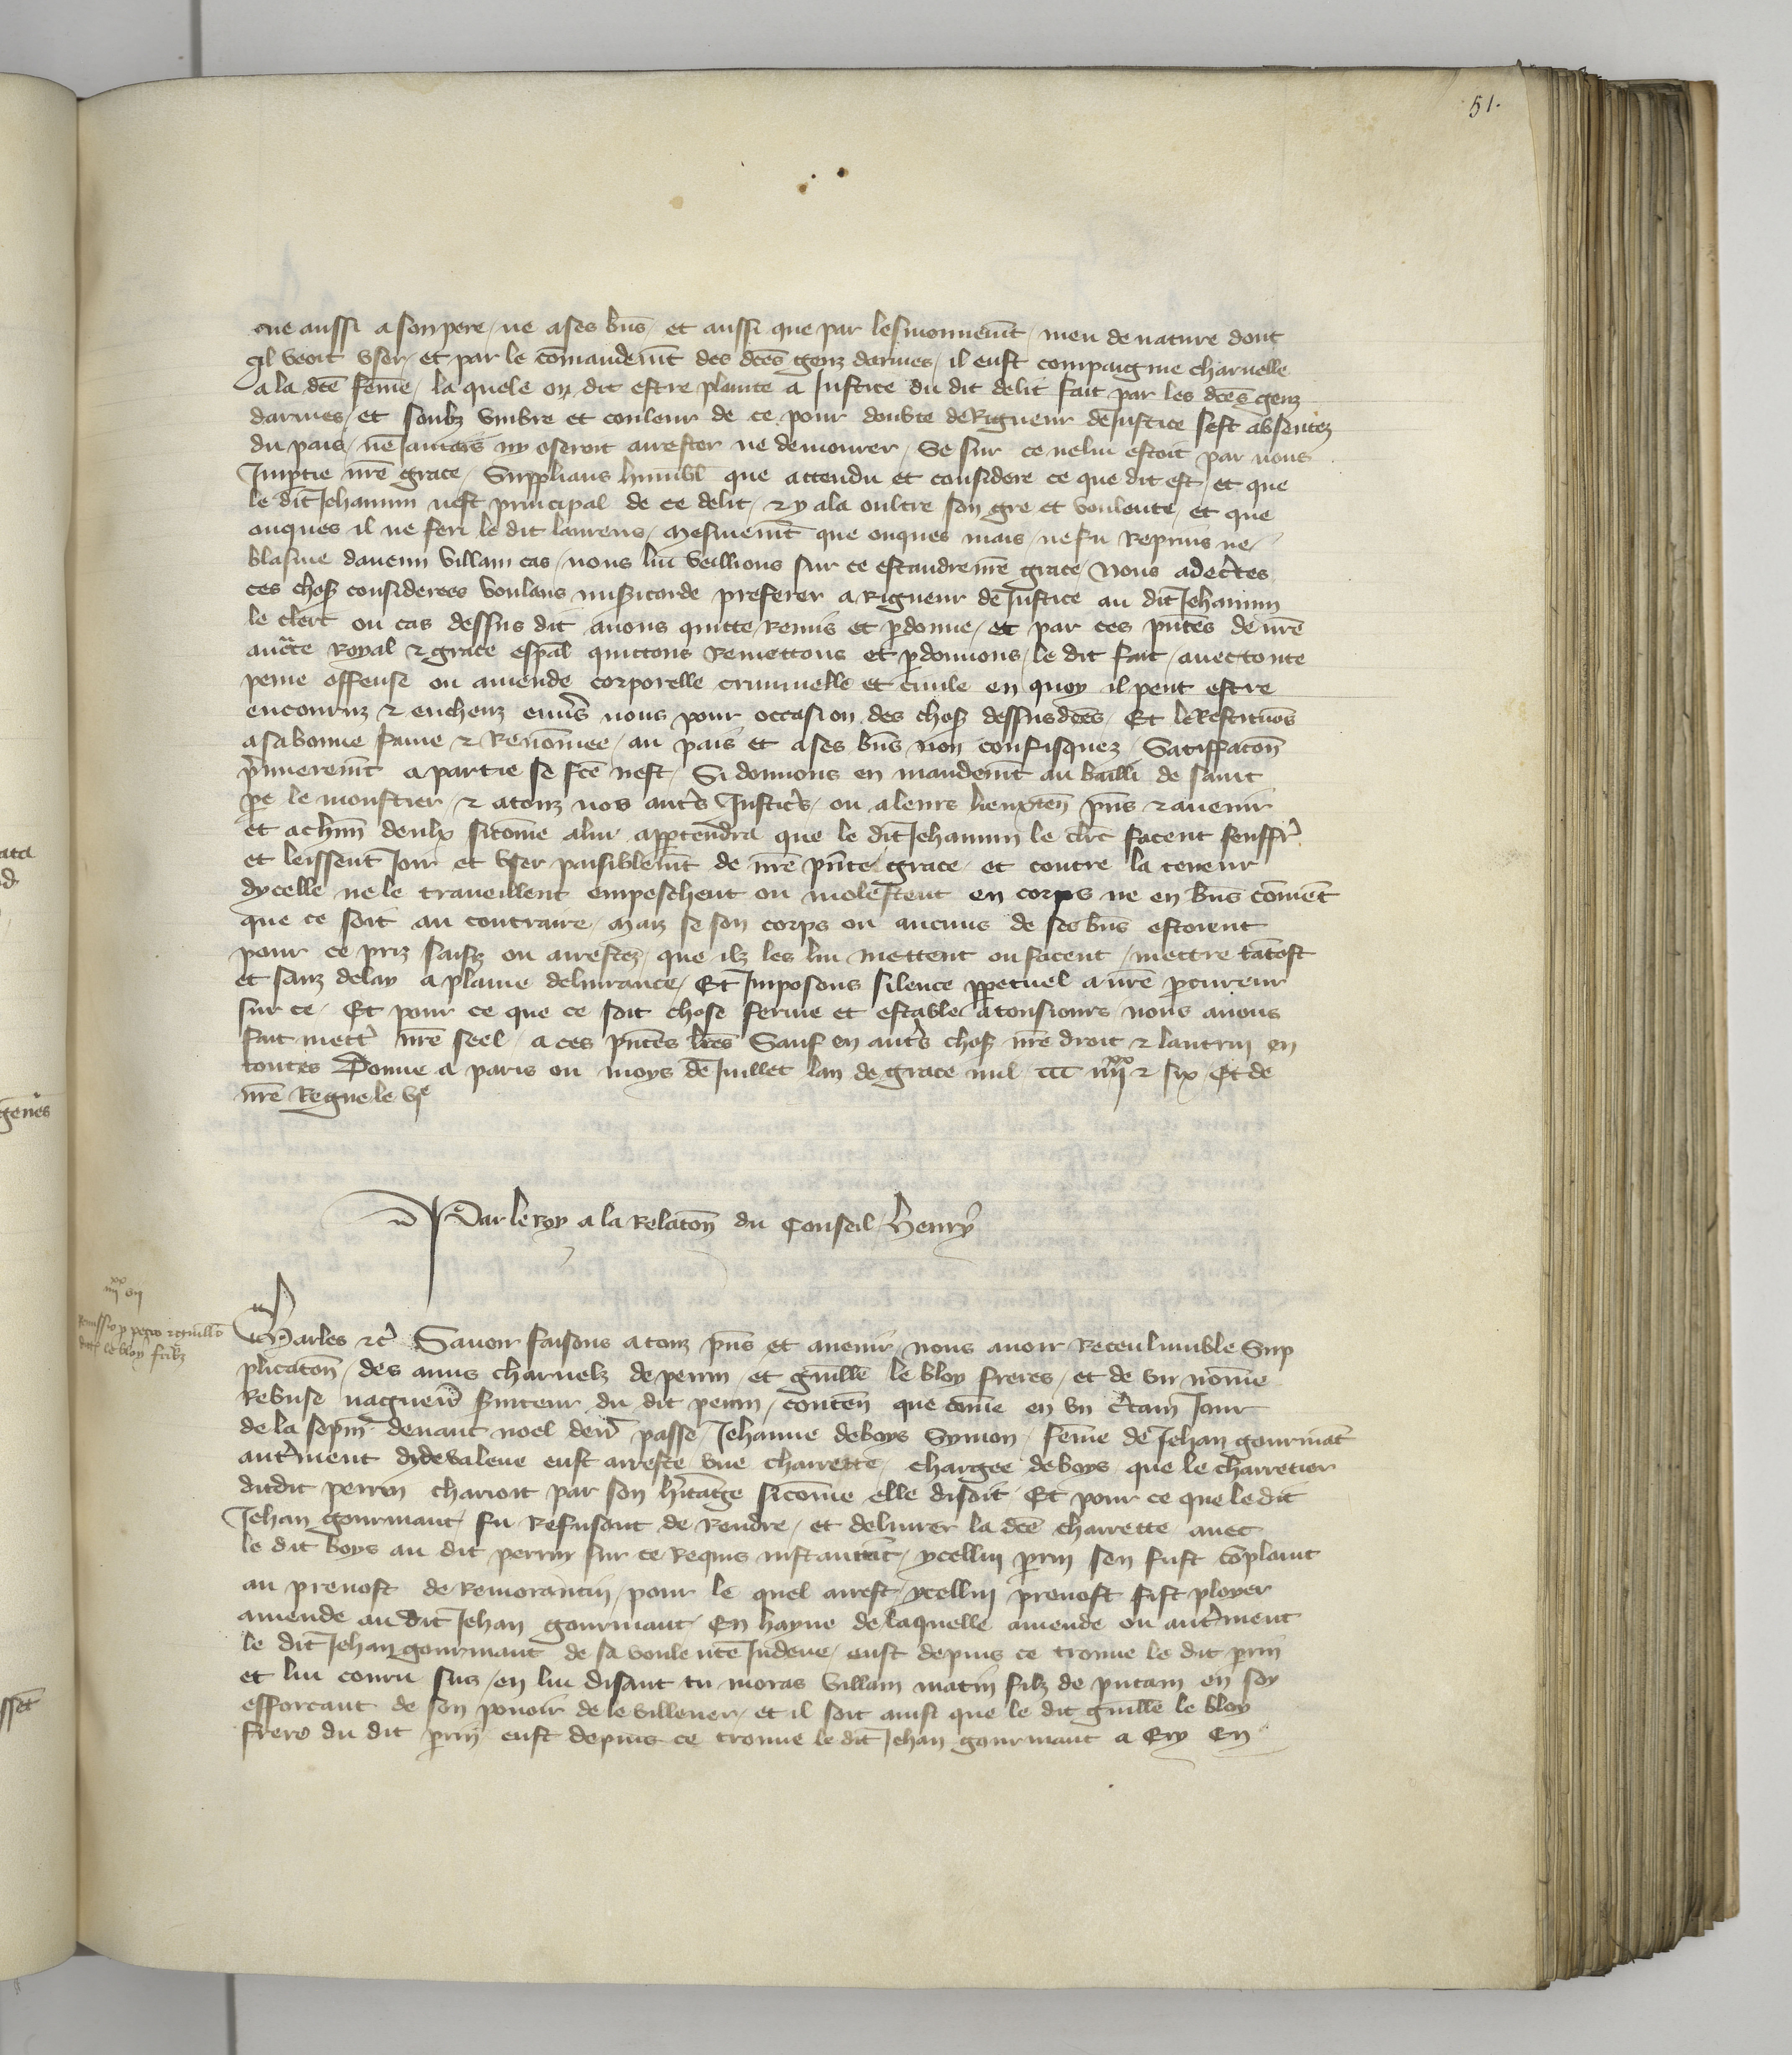 51.
ne aussi a son pere, ne a ses bn̄s, et aussi que par lesmouvem̄t, meu de nature dont
il veoit user, et par le cōmandem̄t des dc̄es genz darmes, il eust compaignie charnelle
a la dc̄e fēme, la quele on dit estre plainte a Justice du dit delit fait par les dc̄es genz
darmes, et soubz umbre et couleur de ce pour doubte de Rigueur de Justice sest absentez
du pais, ne Jamais ny oseroit arrester ne demourer, Se sur ce ne lui estoit par nous
Imptie nr̄e grace, Supplians humbl̄ que attendu et considere ce que dit est, et que
le dit Jehannin nest principal de ce delit, & y ala oultre son gre et voulente, et que
onques il ne feri le dit laurens, mesmem̄t que onques mais ne fu Reprins ne
blasme daucun villain cas, nous lui veillions sur ce estandre nr̄e grace, Nous adec̄tes
ces chos̄ considerees voulans mis̄icorde preferer a Rigueur de Justice au dit Jehannin
le clert ou cas dessus dit avons quitte, Remis et p̱donne, et par ces pn̄tes de nr̄e
auct̄e Royal & grace esp̄al quittons Remettons et p̱donnons, le dit fait, avec toute
peine offense ou amende corporelle criminelle et civile en quoy il peut estre
encouruz & encheuz env̄s nous pour occasion des chos̄ dessusdc̄es, Et le Restituōs
a sa bonne fame & Renōmee, au pais et a ses bn̄s non confisquez, Satiffac̄on
p̄mierem̄t a partie se fc̄e nest, Si donnons en mandem̄t au bailli de saint
p̱e le moustier, & a touz nos autr̄s Justic̄s, ou a leurs lieuxten̄ pn̄s & avenir
et a chūn deulx sicōme a lui app̱tendra que le dit Jehannin le clrc̄ facent seuffr̄
et leissent Joir et user paisiblem̄t de nr̄e pn̄te grace, et contre la teneur
dycelle ne le traveillent empeschent ou molestent en corps ne en bn̄s cōment
que ce soit au contraire, Maiz se son corps ou aucuns de ses bn̄s estoient
pour ce priz saisiz ou arrestez, que ilz les lui mettent ou facent, mettre tātost
et sanz delay a plaine delivrance, Et Imposons silence p̱petuel a nr̄e p̱cureur
sur ce, Et pour ce que ce soit chose ferme et estable a tousiours nous avons
fait mett̄ nr̄e seel, a ces pn̄tes lr̄es Sauf en autr̄s chos̄ nr̄e droit & lautrui en
toutes Donne a paris ou moys de Juillet lan de grace mil CCC IIIIxx & six, Et de
nr̄e Regne le VIe
Par le Roy a la Relac̄on du Conseil, Henry
Charles &c̄ Savoir faisons a touz pn̄s et avenir, nous avoir Receu lumble Sup
plicac̄on, des amis charnelz de perrin, et guill̄e le bloy freres, et de un nōme
Rebuse nagueir̄ s̄viteur du dit perrin, conten̄ que cōme en un c̄tain Jour
de la sepm̄ devant noel den̄r passe, Jehanne deboys Symon, fēme de Jehan gourmāt
autr̄ment dydevalene eust arreste une charrette, chargee deboys, que le charretier
dudit perrin charioit par son h̄itatge sicōme elle disoit, Et pour ce que le dit
Jehan gourmant, fu Refusant de Rendre, et delivrer la dc̄e charrette avec
le dit boys au dit perrin sur ce Requis instanm̄t, ycellui p̱rin sen fust cōplaint
au prevost de Remorantin, pour le quel arrest, ycellui prevost fist ployer
amende au dit Jehan gourmant, En hayne de laquelle amende ou autr̄ment
le dit Jehan gourmant de sa voulente Indeue, eust depuis ce trouve le dit p̱rin
et lui couru sus, en lui disant tu moras villain matin filz de putain en soy
efforcant de son povoir de le villener, et il soit ainsi que le dit guill̄e le bloy
frere du dit p̱rin eust depuis ce trouve le dit Jehan gourmant a Cry En
IIIIxx VII
Remissio p̱ petro & guill̄o
dcis̄ le bloy frībz